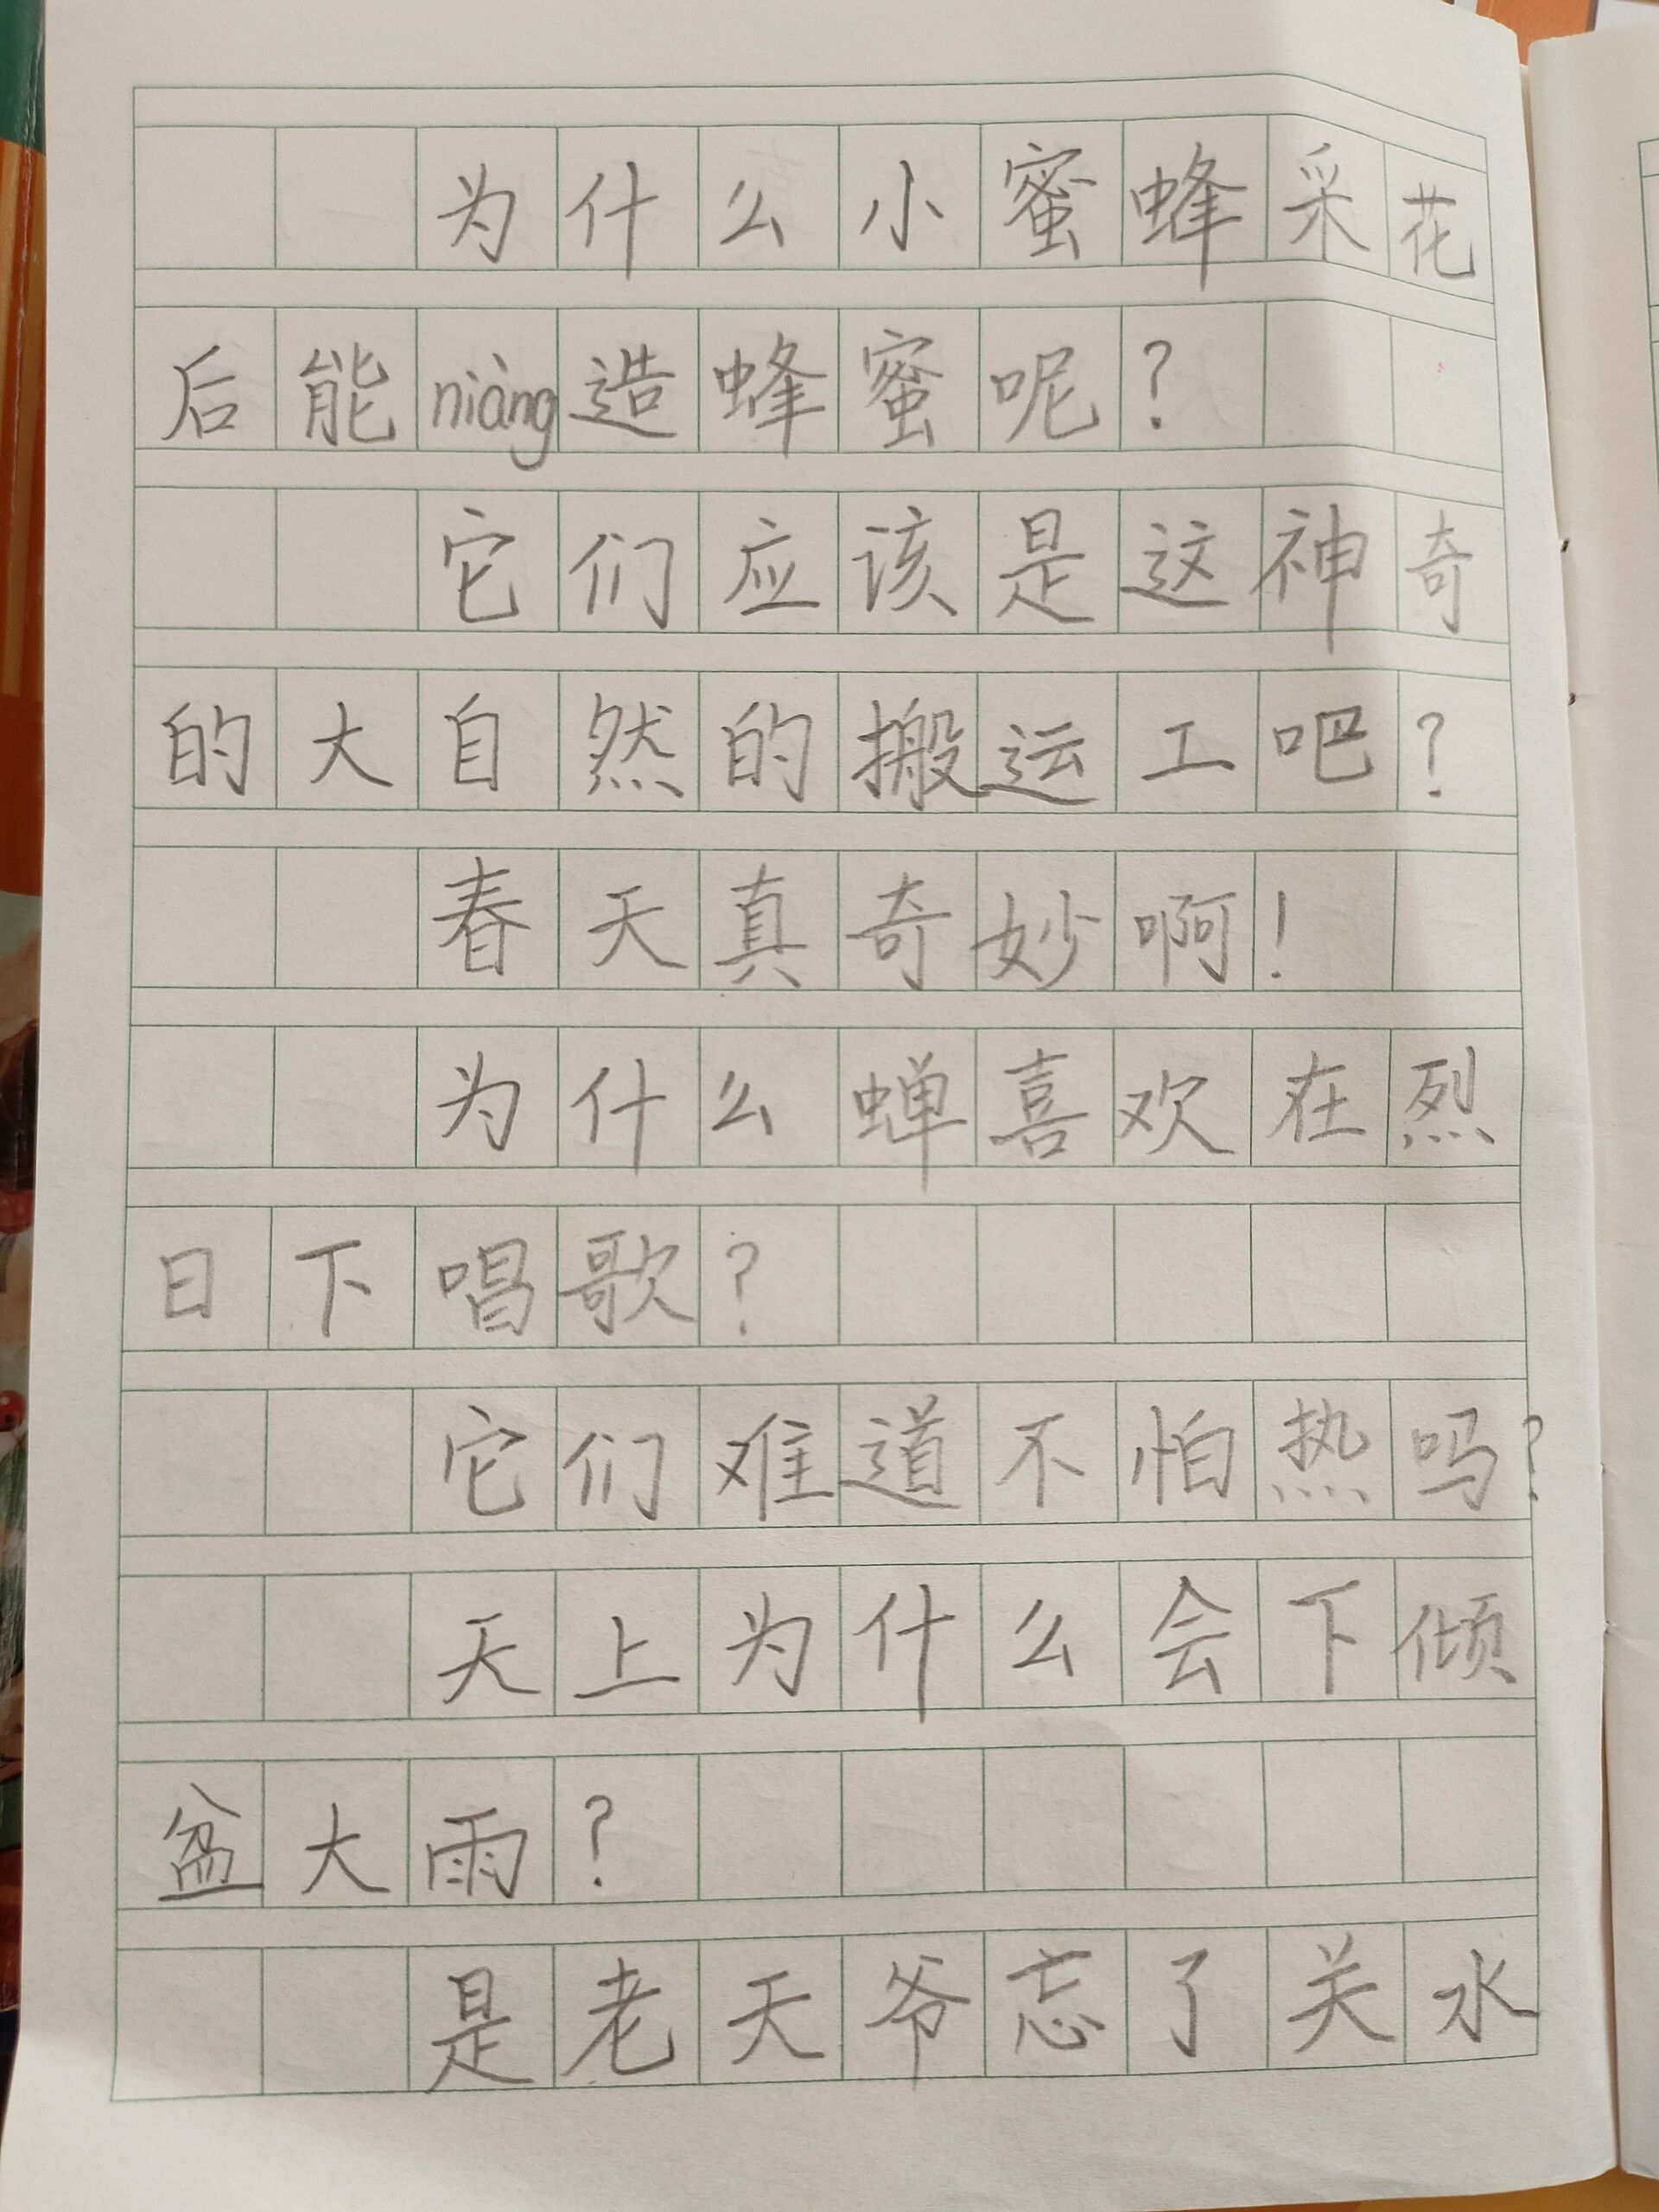 为什么小蜜蜂采花
后能niàng造蜂蜜呢?
它们应该是这神奇
的大自然的搬运工吧?
春天真奇妙啊!
为什么蝉喜欢在烈
日下唱歌?
它们难道不怕热吗?
天上为什么会下倾
盆大雨?
是老天爷忘了关水